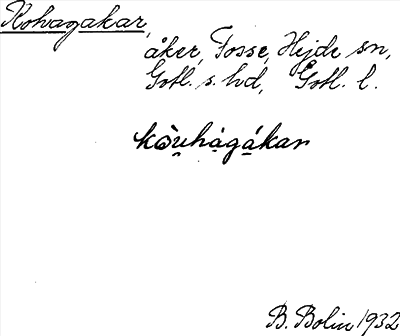 Kohagakar,
åker, Fosse, Hejde sn,
Gotl. s. hd, Gotl. l.
kò̬u̬hȧgá̱kar
B. Bolin 1932